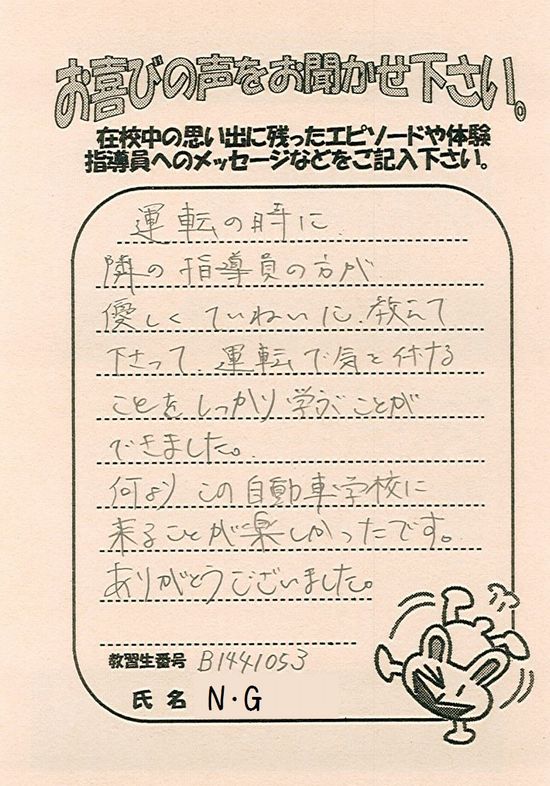 お喜びの声をお聞かせ下さい。
在校中の思い出に残ったエピソードや体験
指導員へのメッセージなどをご記入下さい。
運転の時に
隣の指導員の方が
優しくていねいに、教えて
下さって、運転で気を付ける
ことをしっかり学ぶことが
できました。
何よりこの自動車学校に
来ることが楽しかったです。
ありがとうございました。
教習生番号 B1441053
氏名 N・G